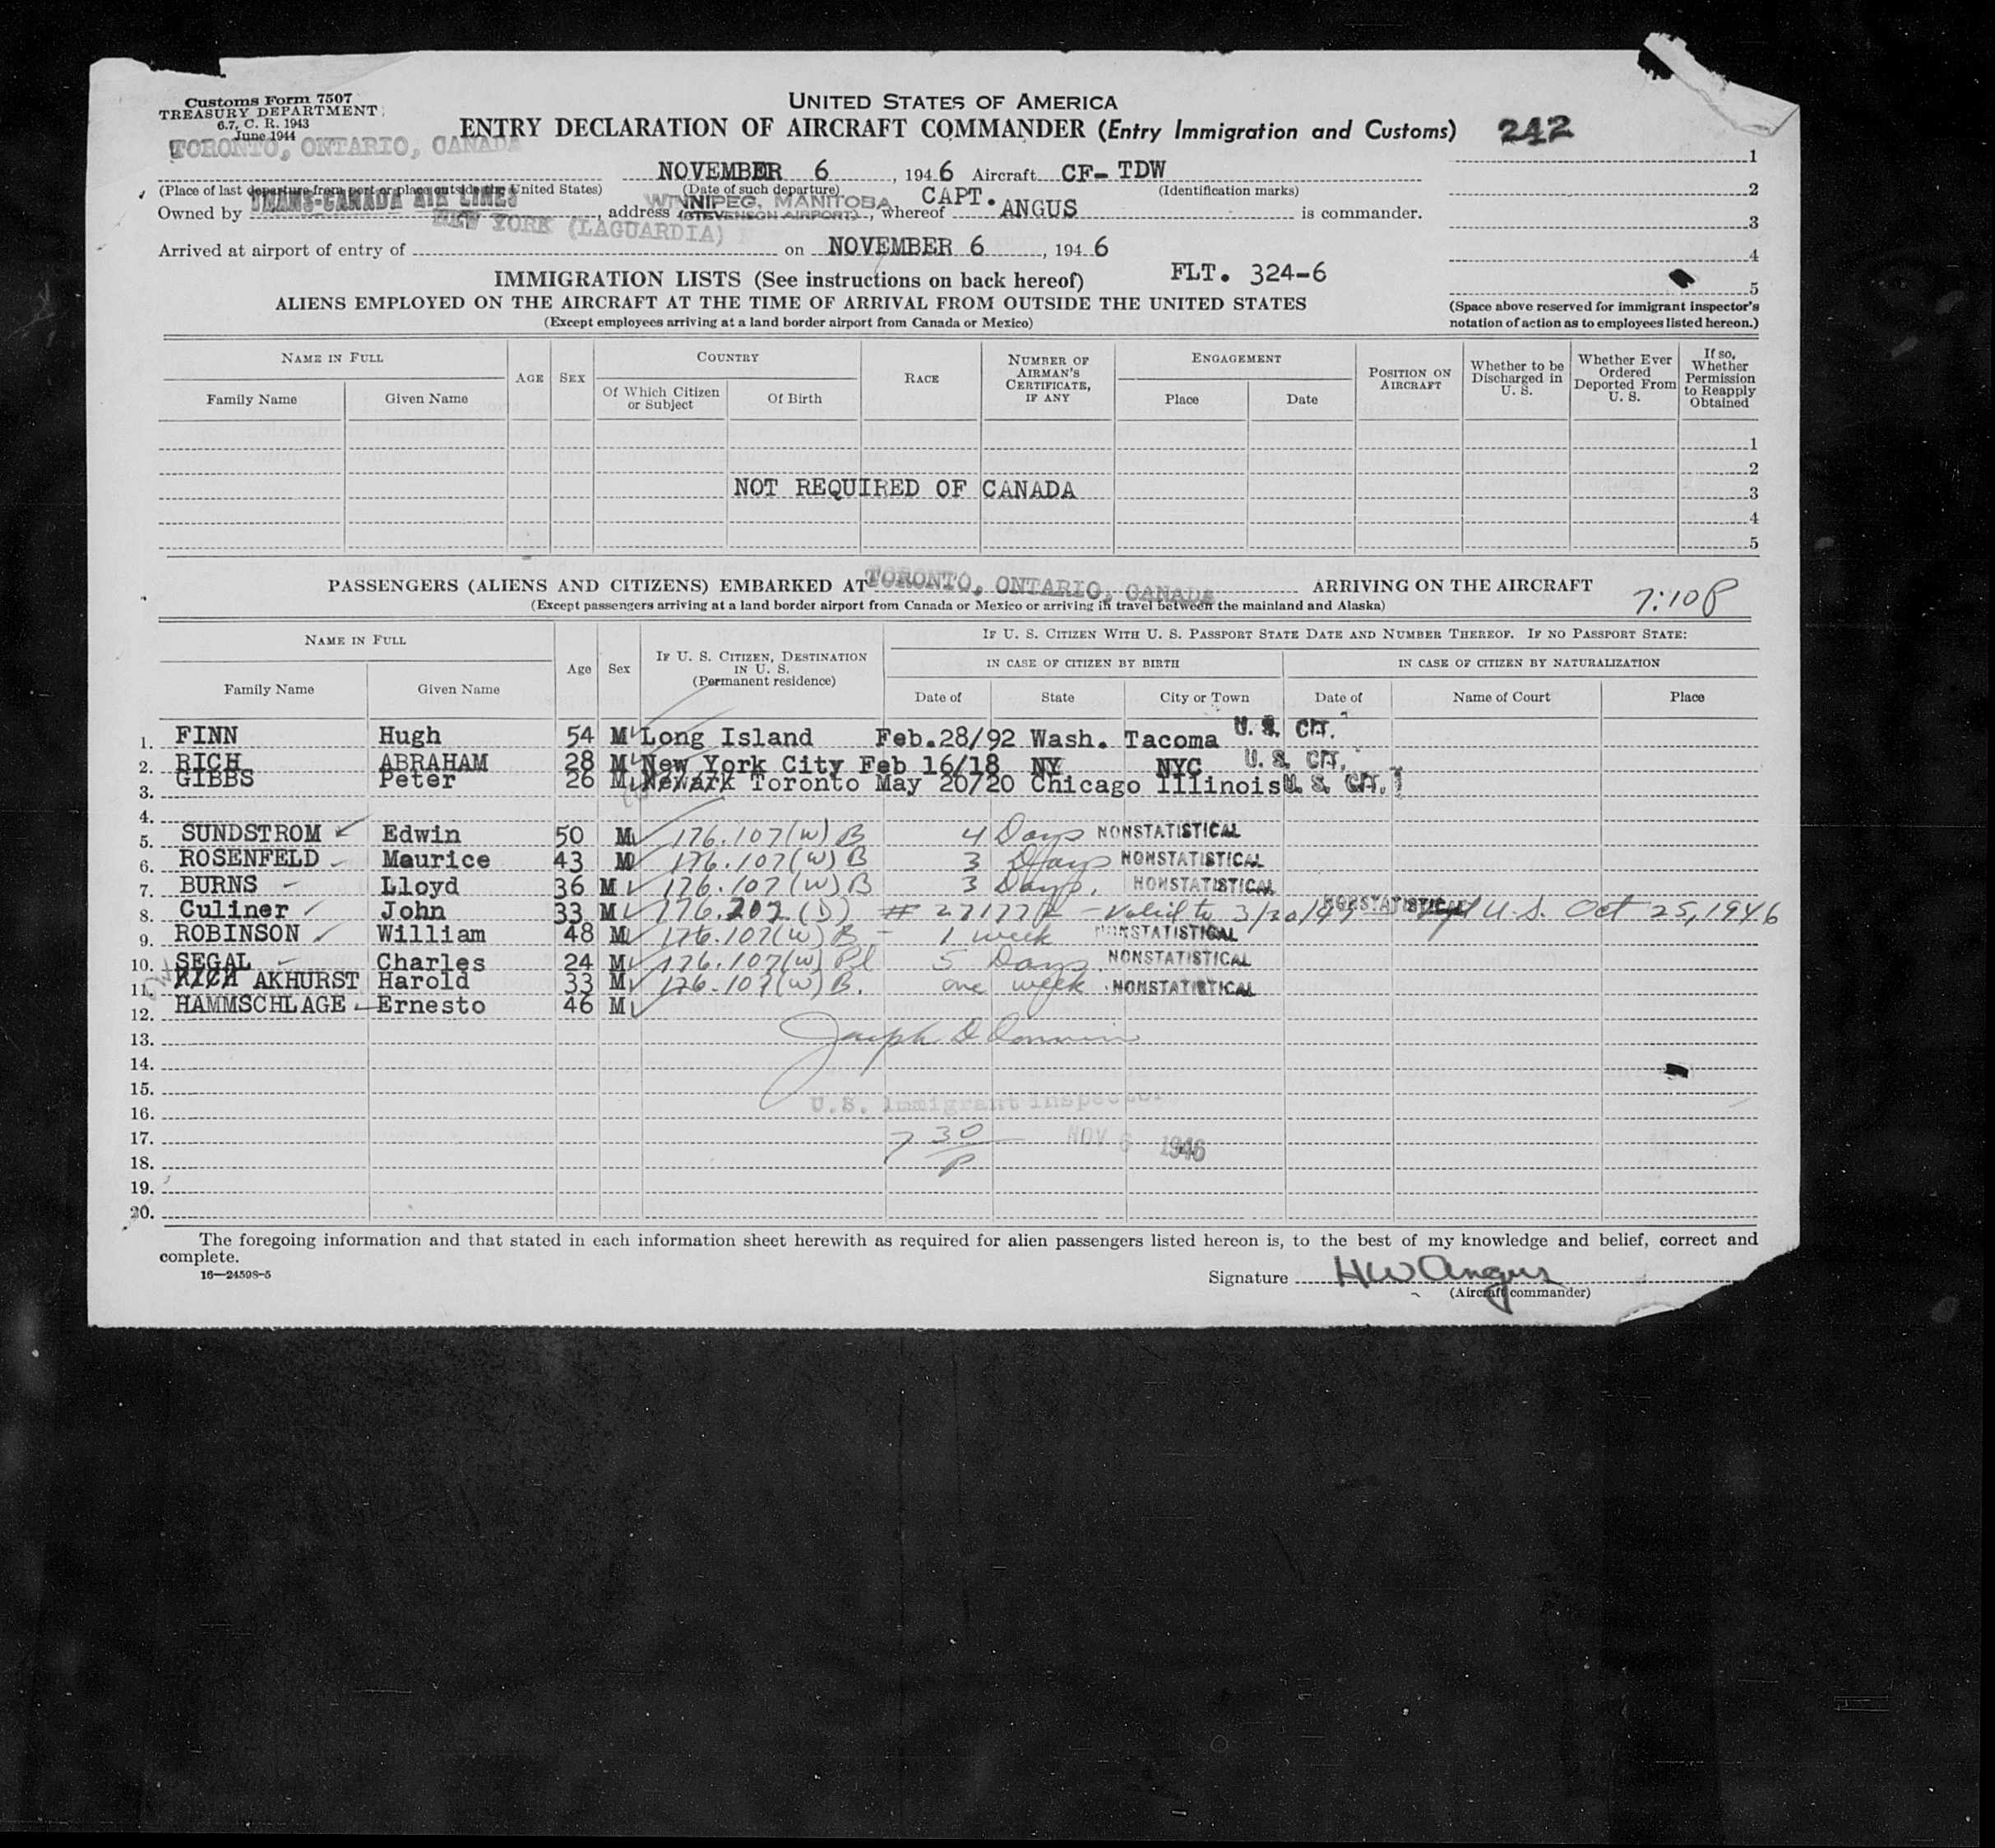 Customs Form 7507
TREASURY DEPARTMENT
6.7, C. R. 1943
June 1944
UNITED STATES OF AMERICA
ENTRY DECLARATION OF AIRCRAFT COMMANDER (Entry Immigration and Customs) 242
TORONTO, ONTARIO, CANADA
NOVEMBER 6, 1946 Aircraft CF-TDW
(Place of last departure from port or place outside the United States) (Date of such departure) (Identification marks)
Owned by TRANS-CANADA AIR LINES, address WINNIPEG, MANITOBA (STEVENSON AIRPORT), whereof CAPT. ANGUS is commander.
NEW YORK (LAGUARDIA)
Arrived at airport of entry of on NOVEMBER 6, 1946
1
2
3
4
5
(Space above reserved for immigrant inspector's notation of action as to employees listed hereon.)
IMMIGRATION LISTS (See instructions on back hereof) FLT. 324-6
ALIENS EMPLOYED ON THE AIRCRAFT AT THE TIME OF ARRIVAL FROM OUTSIDE THE UNITED STATES
(Except employees arriving at a land border airport from Canada or Mexico)
NAME IN FULL AGE SEX COUNTRY RACE NUMBER OF AIRMAN'S CERTIFICATE, IF ANY ENGAGEMENT POSITION ON AIRCRAFT Whether to be Discharged in U. S. Whether Ever Ordered Deported From U. S. If so, Whether Permission to Reapply Obtained
Family Name Given Name Of Which Citizen or Subject Of Birth Place Date
1
2
NOT REQUIRED OF CANADA 3
4
5
PASSENGERS (ALIENS AND CITIZENS) EMBARKED AT TORONTO, ONTARIO, CANADA ARRIVING ON THE AIRCRAFT
(Except passengers arriving at a land border airport from Canada or Mexico or arriving in travel between the mainland and Alaska) 7:10P
NAME IN FULL Age Sex IF U. S. CITIZEN, DESTINATION IN U. S. (Permanent residence) IF U. S. CITIZEN WITH U. S. PASSPORT STATE DATE AND NUMBER THEREOF. IF NO PASSPORT STATE:
IN CASE OF CITIZEN BY BIRTH IN CASE OF CITIZEN BY NATURALIZATION
Family Name Given Name Date of State City or Town Date of Name of Court Place
1. FINN Hugh 54 M Long Island Feb.28/92 Wash. Tacoma U. S. CIT.
2. RICH ABRAHAM 28 M New York City Feb 16/18 NY NYC U. S. CIT.
3. GIBBS Peter 26 M Newark Toronto May 20/20 Chicago Illinois U. S. CIT.
4.
5. SUNDSTROM Edwin 50 M 176.107(W) B 4 Days NONSTATISTICAL
6. ROSENFELD Maurice 43 M 176.107(W) B 3 Days NONSTATISTICAL
7. BURNS Lloyd 36 M 176.107(W) B 3 Days. NONSTATISTICAL
8. Culiner John 33 M 176.202 (D) Valid to 3/20/47 NONSTATISTICAL U.S. Oct 25, 1946
9. ROBINSON William 48 M 176.107(W) B - 1 week NONSTATISTICAL
10. SEGAL Charles 24 M 176.107(W) Pl 5 Days. NONSTATISTICAL
11. RICH AKHURST Harold 33 M 176.107(W) B. one week NONSTATISTICAL
12. HAMMSCHLAGE Ernesto 46 M
13.
14.
15.
16. U.S. Immigrant Inspector
17. 7 30 P NOV 6 1946
18.
19.
20.
The foregoing information and that stated in each information sheet herewith as required for alien passengers listed hereon is, to the best of my knowledge and belief, correct and
complete.
16—24598-5
Signature HW Angus
(Aircraft commander)